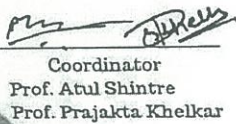 Coordinator
Prof. Atul Shintre
Prof. Prajakta Khelkar